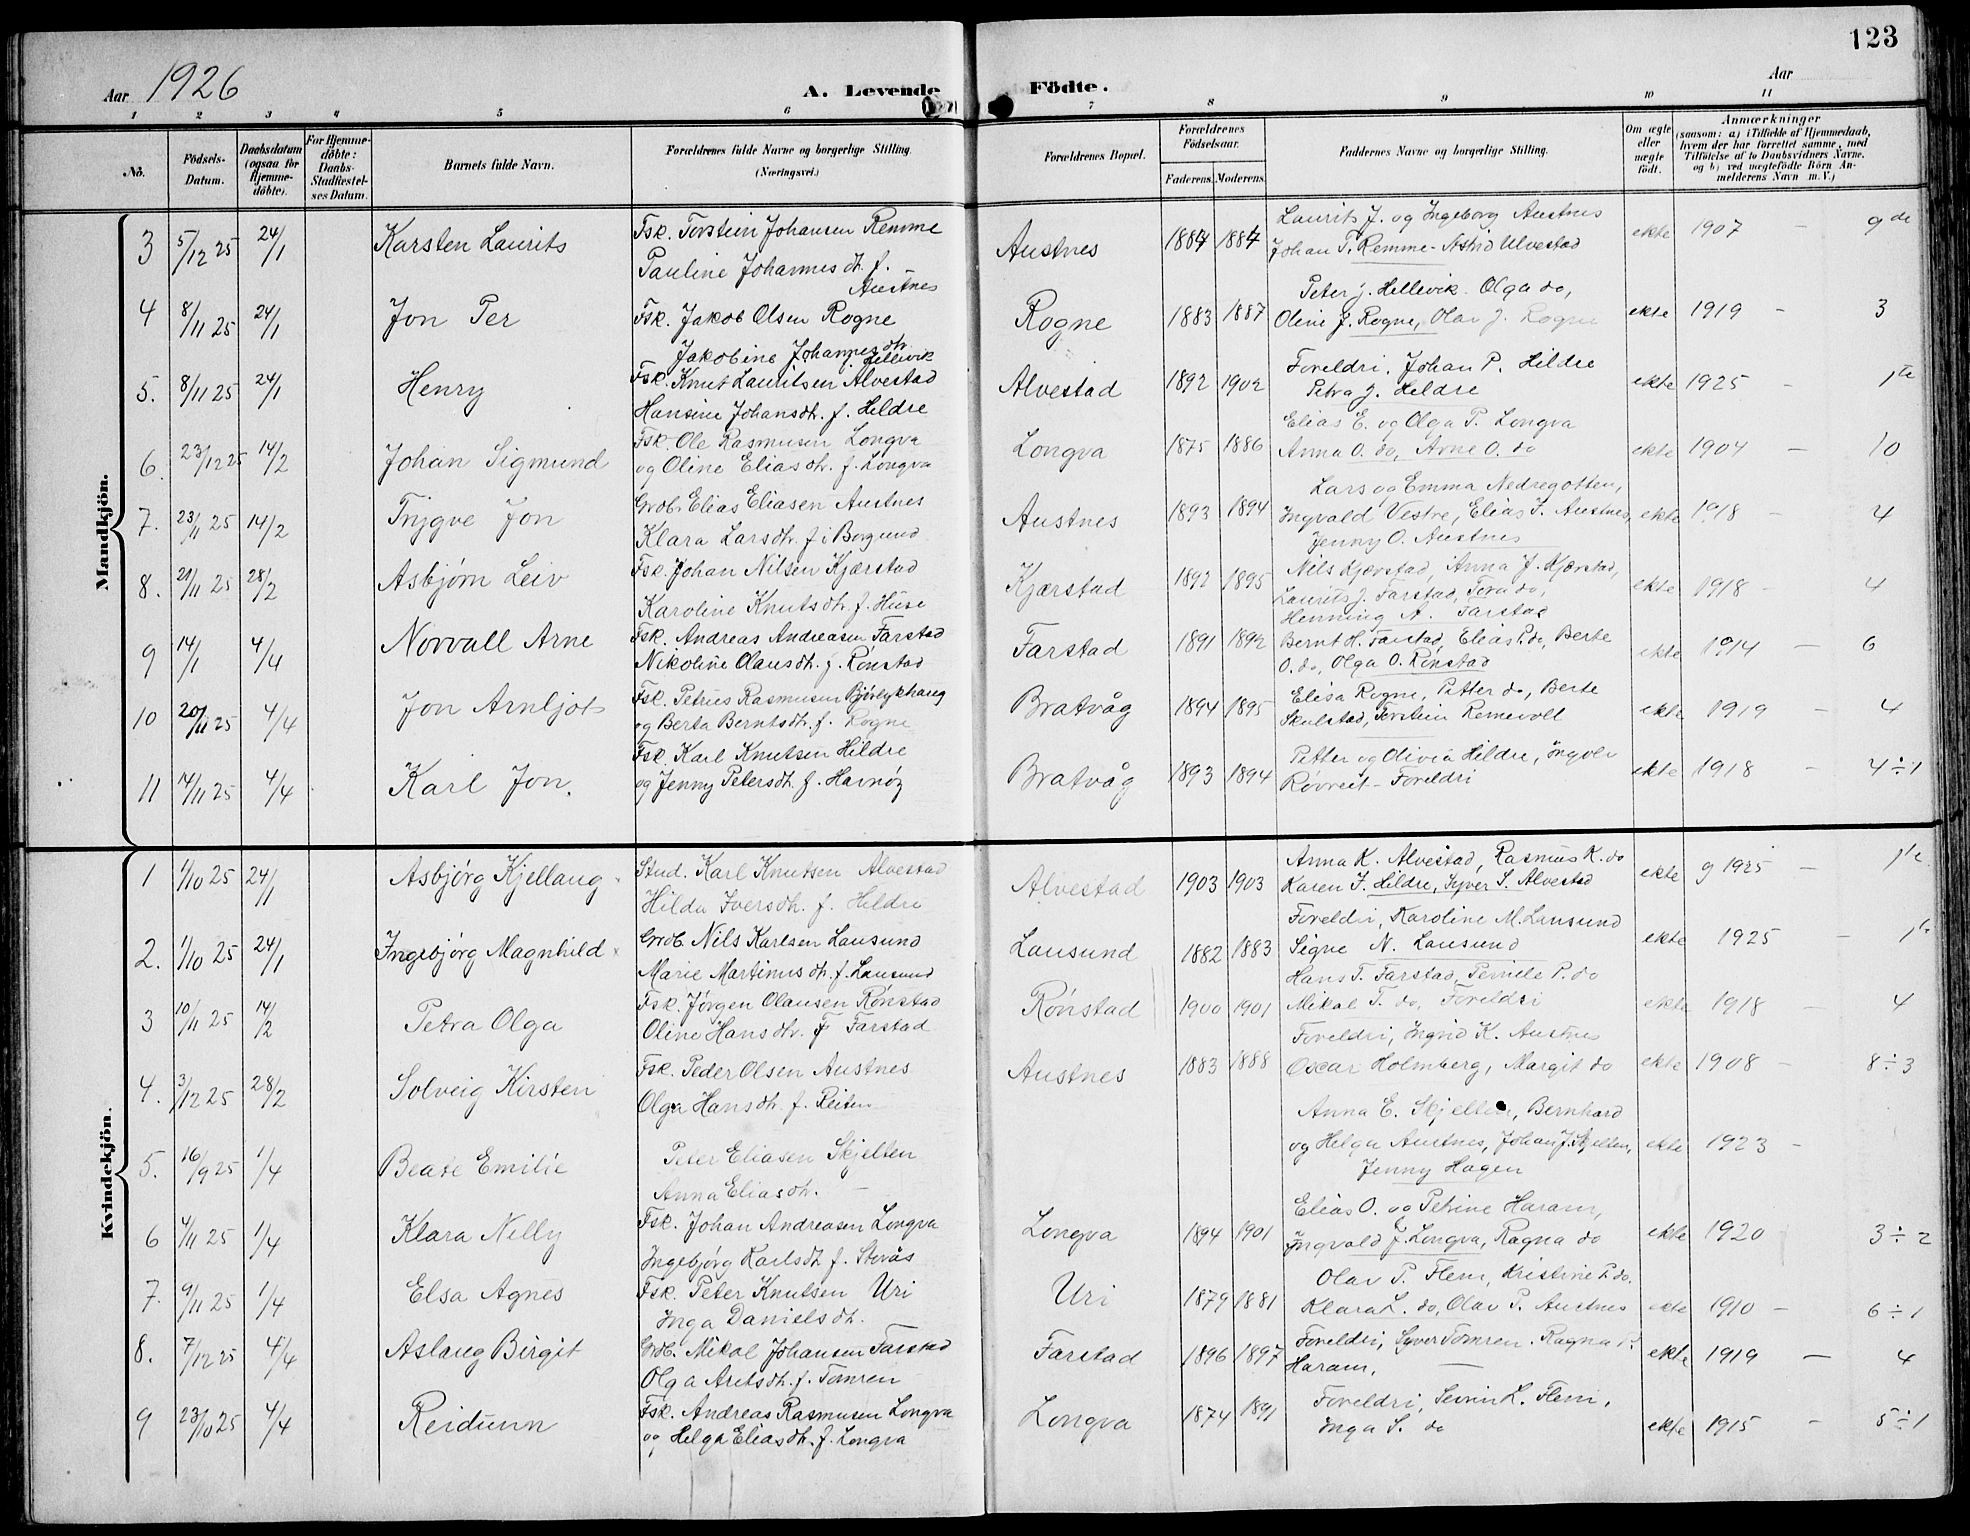 123
Aar 1926
A. Levende Födte.
Aar
1 2 3 4 5 6 7 8 9 10 11
No.
Födsels-Datum.
Daabsdatum (ogsaa for Hjemme-döbte).
For Hjemme-döbte: Daabs-Stadfæstel-ses Datum.
Barnets fulde Navn.
Forældrenes fulde Navne og borgerlige Stilling. (Næringsvei.)
Forældrenes Bopæl.
Forældrenes Födselsaar.
Faderens. Moderens.
Faddernes Navne og borgerlige Stilling.
Om ægte eller uægte födt.
Anmærkninger
(saasom: a) i Tilfælde af Hjemmedaab, hvem der har forrettet samme, med Tilföielse af to Daabsvidners Navne, og b) ved uægtefödte Börn An-melderens Navn m. V.)
Mandkjön.
3 5/12 25 24/1 Karsten Laurits Fsk. Torstein Johansen Remme Austnes 1884 1884 Laurits J. og Ingeborg Austnes ekte 1907 - 9de
Pauline Johannesdtr. f. Austnes Johan T. Remme - Astrid Ulvestad
4 8/11 25 24/1 Jon Per Fsk. Jakob Olsen Rogne Rogne 1883 1887 Peter J. Hellevik. Olga do, ekte 1919 - 3
Jakobine Johannesdtr. Hellevik Oline J. Rogne, Olav J. Rogne
5. 8/11 25 24/1 Henry Fsk. Knut Lauritsen Alvestad Alvestad 1892 1902 Foreldri, Johan P. Hildre ekte 1925 - 1te
Hansine Johansdtr. f. Hildre Petra J. Hildre
6. 23/12 25 14/2 Johan Sigmund Fsk. Ole Rasmusen Longva Longva 1875 1886 Elias E. og Olga P. Longva ekte 1904 - 10
og Oline Eliasdtr. f. Longva Anna O. do, Arne O. do
7. 23/11 25 14/2 Trygve Jon Grdb. Elias Eliasen Austnes Austnes 1893 1894 Lars og Emma Nedregotten, ekte 1918 - 4
Klara Larsdtr. f. i Borgund Ingvald Vestre, Elias J. Austnes,
Jenny O. Austnes
8. 21/11 25 28/2 Asbjørn Leiv Fsk. Johan Nilsen Kjærstad Kjærstad 1892 1895 Nils Kjærstad, Anna J. Kjærstad, ekte 1918 - 4
Karoline Knutsdtr. f. Huse Laurits J. Farstad, Tora do,
Henning A. Farstad
9 14/1 4/4 Norvall Arne Fsk. Andreas Andreasen Farstad Farstad 1891 1892 Bernt H. Farstad, Elias P. do, Berte ekte 1914 - 6
Nikoline Olausdtr. f. Rønstad O. do, Olga O. Rønstad
10 20/11 25 4/4 Jon Arnljot Fsk. Petrus Rasmusen Bjørlykhaug Bratvåg 1894 1895 Elisa Rogne, Petter do, Berte ekte 1919 - 4
og Berta Berntsdtr. f. Rogne Skulstad, Torstein Remevoll
11 14/11 25 4/4 Karl Jon. Fsk. Karl Knutsen Hildre Bratvåg 1893 1894 Petter og Olivia Hildre, ekte 1918 - 4÷1
og Jenny Petersdtr. f. Havnøy Foreldri
Kvindekjön.
1 1/10 25 24/1 Asbjørg Kjellaug Stud. Karl Knutsen Alvestad Alvestad 1903 1903 Anna K. Alvestad, Rasmus K. do ekte g 1925 - 1te
Hilda Iversdtr. f. Hildre Karen J. Hildre, Syver S. Alvestad
2. 1/10 25 24/1 Ingebjørg Magnhild Grdb. Nils Karlsen Lausund Lausund 1882 1883 Foreldri, Karoline M. Lausund ekte 1925 - 1te
Marie Martinusdtr. f. Lausund Signe N. Lausund
3 10/11 25 14/2 Petra Olga Fsk. Jørgen Olausen Rønstad Rønstad 1900 1901 Hans T. Farstad, Pernele P. do ekte 1918 - 4
Oline Hansdtr. f. Farstad Mikal T. do, Foreldri
4. 3/12 25 28/2 Solveig Kirsten Fsk. Peder Olsen Austnes Austnes 1883 1888 Foreldri, Ingrid K. Austnes ekte 1908 - 8÷3
Olga Hansdtr. f. Reiten Oscar Holmberg, Margit do
5. 16/9 25 1/4 Beate Emilie Peter Eliasen Skjelten Anna E. Skjelten, Bernhard ekte 1923 -
Anna Eliasdtr. - og Helga Austnes, Johan J. Skjelten,
Jenny Hagen
6 4/11 25 1/4 Klara Nelly Fsk. Johan Andreasen Longva Longva 1894 1901 Elias O. og Petrine Haram, ekte 1920 3÷2
Ingebjørg Karlsdtr. f. Storås Ingvald J. Longva, Ragna do
7. 9/11 25 1/4 Elsa Agnes Fsk. Peter Knutsen Uri Uri 1879 1881 Olav P. Flem, Kristine P. do. ekte 1910 - 6÷1
Inga Danielsdtr. Klara L. do, Olav P. Austnes
8. 7/12 25 4/4 Aslaug Birgit Grdb. Mikal Johansen Farstad Farstad 1896 1897 Foreldri, Syver Tomren. Ragna P. ekte 1919 - 4
Olga Aretsdtr. f. Tomren Haram,
9 23/10 25 4/4 Reidunn Fsk. Andreas Rasmusen Longva Longva 1874 1891 Foreldri, Sevrin L. Flem, ekte 1915 - 5÷1
og Helga Eliasdtr. f. Longva Inga S. do